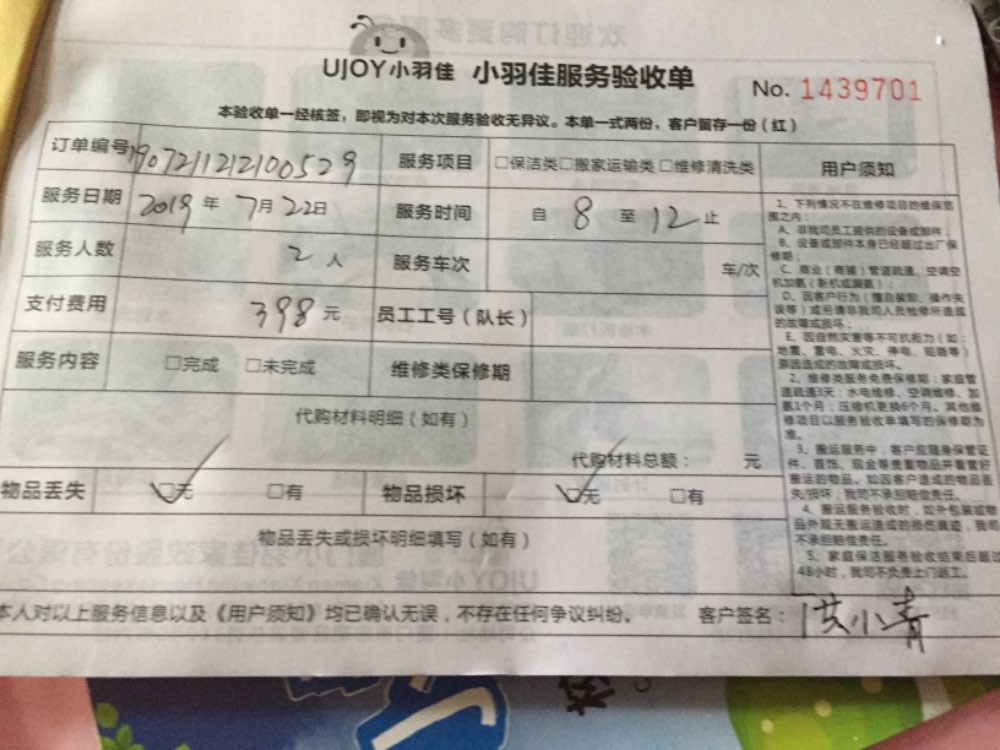 UJOY小羽佳 小羽佳服务验收单 No. 1439701
本验收单一经核签，即视为对本次服务验收无异议。本单一式两份，客户留存一份（红）
订单编号 1907211212100529 服务项目 □保洁类□搬家运输类□维修清洗类 用户须知
服务日期 2019年7月22日 服务时间 自8至12止
服务人数 2人 服务车次 车/次
支付费用 398元 员工工号（队长）
服务内容 □完成 □未完成 维修类保修期
代购材料明细（如有）
代购材料总额： 元
物品丢失 ☑无 □有 物品损坏 ☑无 □有
物品丢失或损坏明细填写（如有）
1、下列情况不在维修项目的维保范
围之内：
A、非我司员工提供的设备或部件；
B、设备或部件本身已经超过出厂保
修期；
C、商业（商铺）管道疏通、空调空
机加氨（新机或漏氨）；
D、因客户行为（擅自装卸、操作失
误等）或另请非我司人员检修所造成
的故障或损坏；
E、因自然灾害等不可抗拒力（如：
地震、雷电、火灾、停电、短路等）
原因造成的故障或损坏。
2、维修类服务免费保修期：家庭管
道疏通3天；水电维修、空调维修、加
氨1个月；压缩机更换6个月。其他维
修项目以服务验收单填写的保修期为
准。
3、搬运服务中，客户应随身保管证
件、首饰、现金等贵重物品并看管好
搬运的物品。如因客户造成的物品丢
失/损坏，我司不承担赔偿责任。
4、搬运服务验收时，如外包装或物
品外观无搬运造成的损伤痕迹，我司
不承担赔偿责任。
5、家庭保洁服务验收结束后超过
48小时，我司不负责上门返工。
本人对以上服务信息以及《用户须知》均已确认无误，不存在任何争议纠纷。 客户签名：洪小青